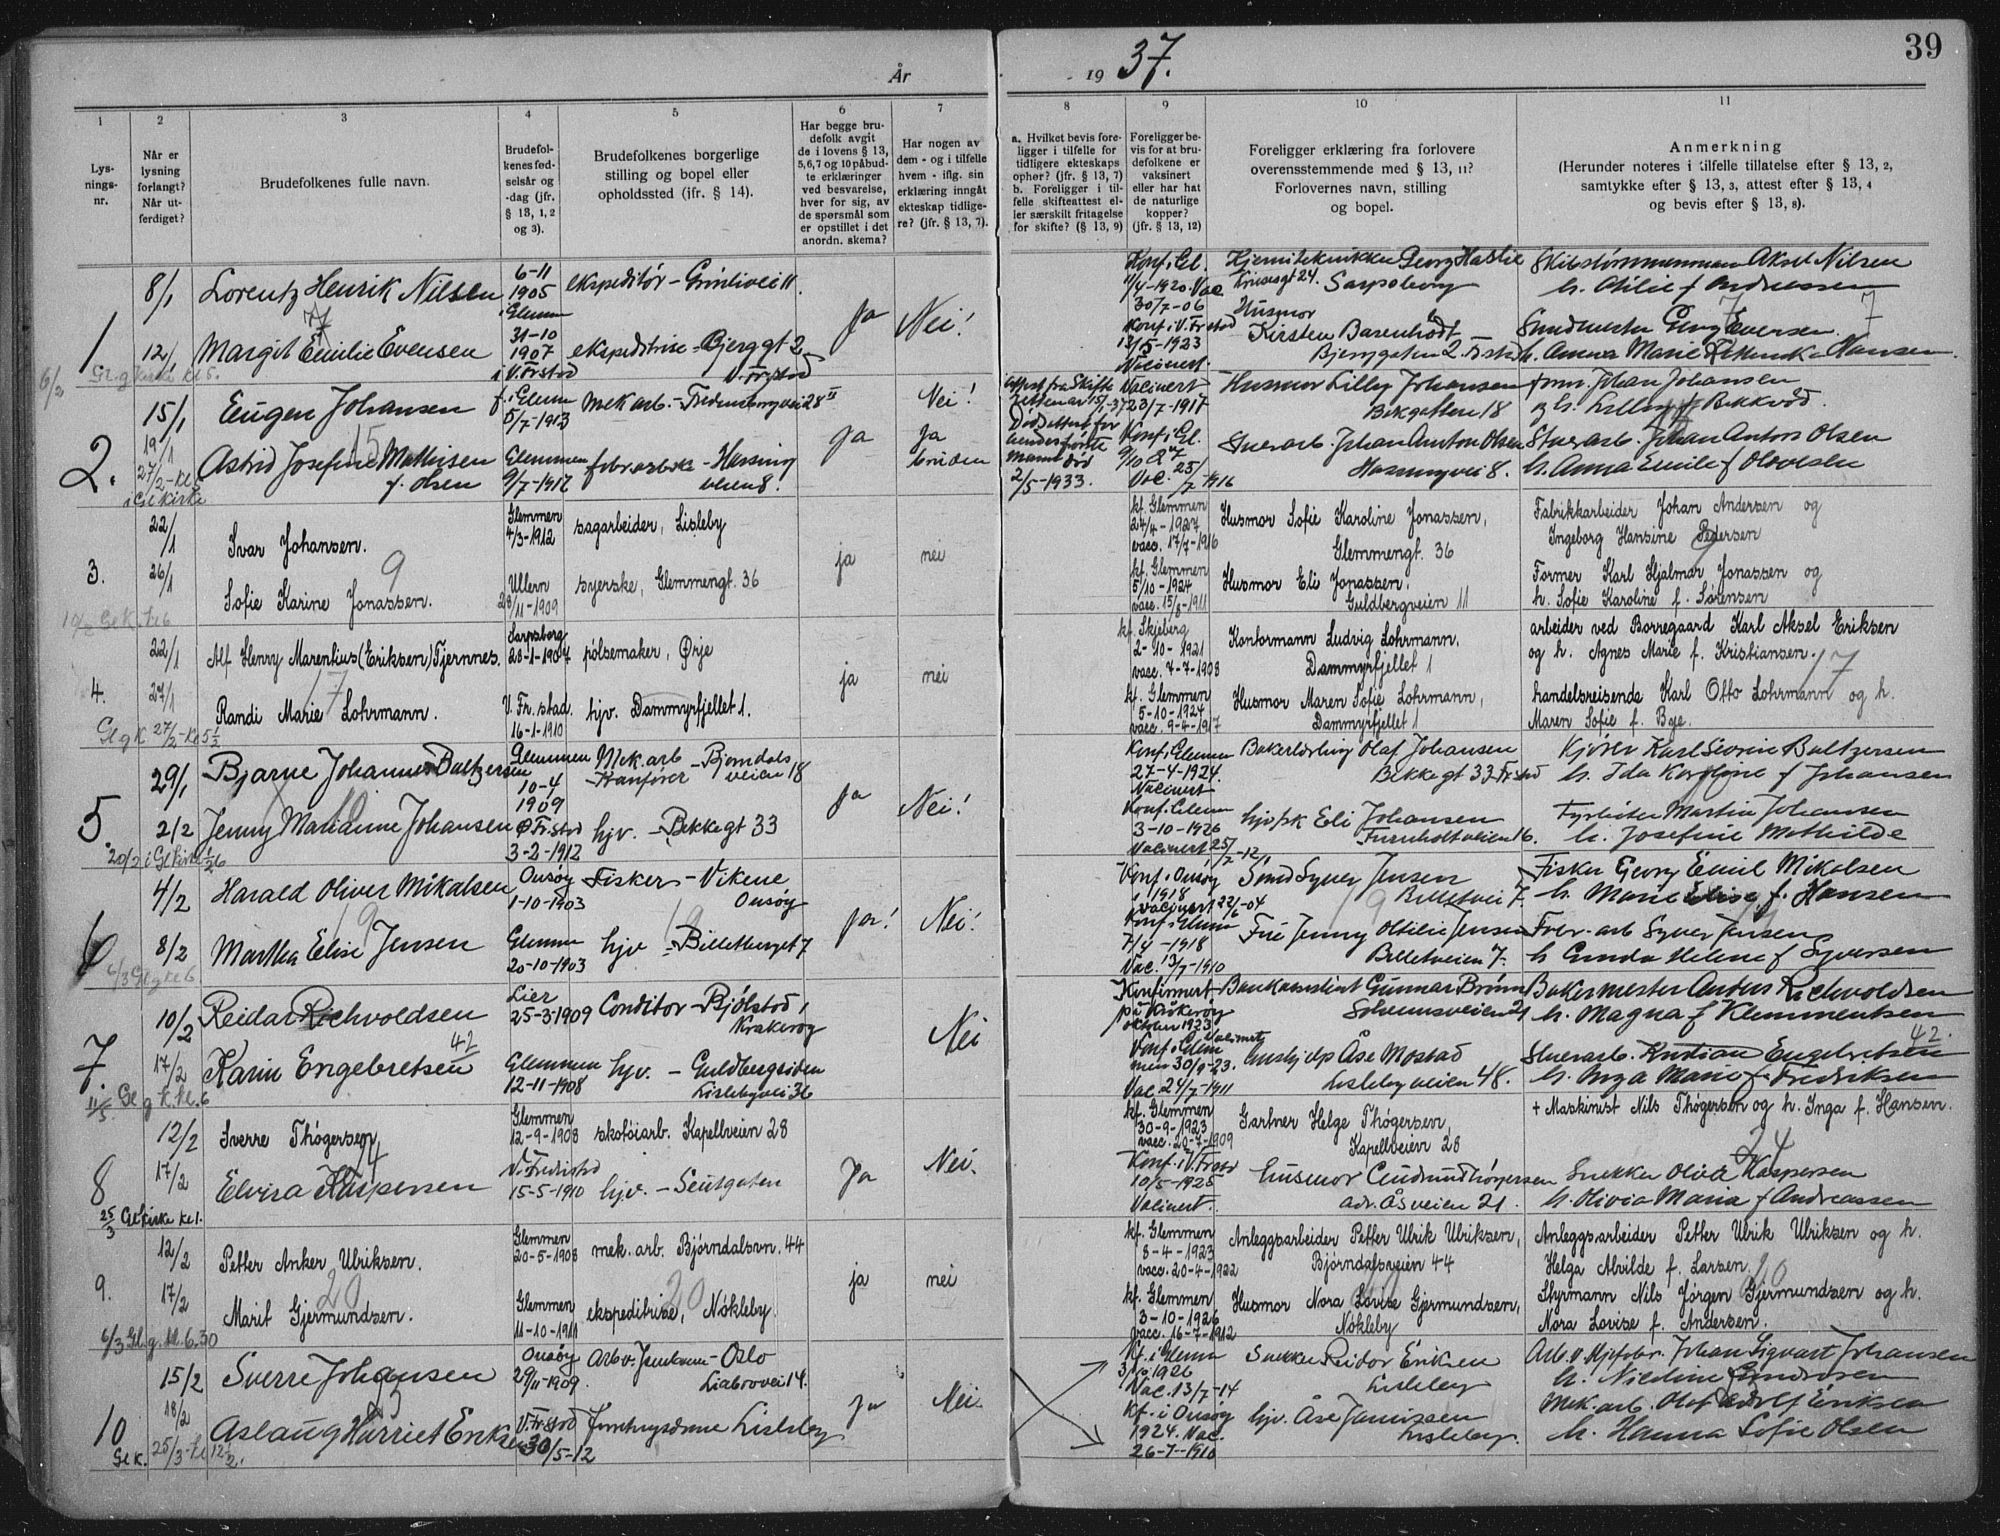 År
19 37.
39
1
2
3
4
5
6
7
8
9
10
11
Lys-
nings-
nr.
Når er
lysning
forlangt?
Når ut-
ferdiget?
Brudefolkenes fulle navn.
Brudefol-
kenes fød-
selsår og
-dag (jfr.
§ 13, 1, 2
og 3).
Brudefolkenes borgerlige
stilling og bopel eller
opholdssted (jfr. § 14).
Har begge bru-
defolk avgit
de i lovens § 13,
5,6,7 og 10 påbud-
te erklæringer
ved besvarelse,
hver for sig, av
de spørsmål som
er opstillet i det
anordn. skema?
Har nogen av
dem - og i tilfelle
hvem - iflg. sin
erklæring inngåt
ekteskap tidlige-
re? (jfr. § 13, 7).
a. Hvilket bevis fore-
ligger i tilfelle for
tidligere ekteskaps
ophør? (jfr. § 13, 7)
b. Foreligger i til-
felle skifteattest el-
ler særskilt fritagelse
for skifte? (§ 13, 9)
Foreligger be-
vis for at bru-
defolkene er
vaksinert
eller har hat
de naturlige
kopper?
(jfr. § 13, 12)
Foreligger erklæring fra forlovere
overensstemmende med § 13, 11?
Forlovernes navn, stilling
og bopel.
Anmerkning
(Herunder noteres i tilfelle tillatelse efter § 13, 2,
samtykke efter § 13, 3, attest efter § 13, 4
og bevis efter § 13, 8).
1.
8/1
Lorentz Henrik Nilsen
6-11
1905
i Glemm
ekspeditör - Grönlivei 11.
Ja
Nei!
Konf. i Gl.
11/4-1920. Vac
30/7-06
Georg Haslie
24. Sarpsborg
Aksel Nilsen
h. Otilie f. Andreassen
7
12/1
Margit Emilie Evensen
31-10
1907
i V. Frstad
ekspeditrise - Bjerggt 2
V. Frstad
Konf i V. Frstad
13/5-1923
Vacinert.
Husmor
Kirsten Barenholdt
Bjerggaten 2. Frstad
Smedmester Georg Evensen.
h. Anna Marie Hansen.
6/2 Gl.g Kirke kl 5.
2.
15/1
Eugen Johansen
f. i Glemm
5/7-1913
Mek arb. - Fredensborgvei 28 II
Ja
Nei!
Attest fra Skifte
15/1-37
Vacinert
23/7-1917
Husmor Lilly Johansen
Bekgatten 18
Johan Johansen
og h. Lilly f. Bekkvod
19/1
27/2 - kl 5
i Gl Kirke
15
Astrid Josefine Mathisen
f. Olsen
Glemmen
9/7-1912
fabrarbske - Hassing
veien 8.
Ja
bruden
Dødsattest for
mann død
2/5-1933.
Konf i Gl.
9/10 27
Vac. 25/7-1916
Stuerarb. Johan Anton Olsen
Hassingvei 8.
Stuerarb. Johan Anton Olsen
h. Anna Emilie f Olavesen
3.
22/1
Ivar Johansen.
Glemmen
4/3-1912
sagarbeider, Lisleby
ja
nei
kf. Glemmen
24/4-1927
vacc. 17/7-1916
Husmor Sofie Karoline Jonassen,
Glemmengt. 36
Fabrikkarbeider Johan Andersen og
Ingeborg Hansine Pedersen
9
26/1
Sofie Karine Jonassen.
Ullern
28/11-1909
syerske, Glemmengt. 36
kf. Glemmen
5/10-1924
vacc. 15/8-1911
Husmor Eli Jonassen.
Guldbergveien 11
Former Karl Hjalmar Jonassen og
h. Sofie Karoline f. Sørensen
4.
22/1
Alf Henry Marentius (Eriksen) Tjernnes.
Sarpsborg
28-1-1904
pølsemaker, Ørje
ja
nei
kf. Skjeberg
2-10-1921
vacc. 7-7-1908
Kontormann Ludvig Lohrmann.
Dammyrfjellet 1
arbeider ved Borregaard Karl Aksel Eriksen
og h. Agnes Marie f. Kristiansen.
17
27/1
Randi Marie Lohrmann.
V. Fr.stad.
16-1-1910
hjv. Dammyrfjellet 1.
kf. Glemmen
5-10-1924
vacc. 9-4-1917
Husmor Maren Sofie Lohrmann,
Dammyrfjellet 1
handelsreisende Karl Otto Lohrmann og h.
Maren Sofie f. Bye.
Gl g K 27/2 - kl 5 1/2
5.
29/1
Bjarne Johannes Baltzersen
Glemmen
10-4
1909
Mek. arb - Bjorndals
Kranfører veien 18
Ja
Nei!
Konf. i Glemm
27-4-1924.
Vacinert
Bakerlærling Olaf Johansen
Bekkegt 33 Frstad
Kjører Karl Severin Baltzersen
h. Ida Karoline f Johansen
10
2/2
Jenny Marianne Johansen
Ø Fr.stad
3-2-1912
hjv. - Bekkegt 33
Konf. i Glemm
3-10-1926
Vacinert 25/7-12.
hjvpk Eli Johansen
Furuholtveien 16.
Fyrbøter Martin Johansen
h. Josefine Mathilde
6
4/2
Harald Oliver Mikalsen
Onsøy
1-10-1903
Fisker - Vikene
Onsøy
Ja!
Nei!
Konf. i Onsøy
1918
vacinert 22/6-04
Smed Syver Jensen
Billetvei 7.
Fisker Georg Emil Mikalsen
h. Marie Elise f. Hansen
19
8/2
Martha Elise Jensen
Glemm
20-10-1903
hjv - Billetberget 7
Konf. i Glemm
7/4-1918
Vac. 13/7-1910
Frue Jenny Otilie Jensen
Billetveien 7.
Syver Jensen
h Gunda Helene f Syversen
7.
10/2
Reidar Richvoldsen
Lier
25-3-1909
Conditor - Bjölstad,
Kråkerøy
Nei
Konfirmert
på Kråkerøy
oktober 1923
Bankassistent Gunnar Brönn
Solheimsveien 21
Bakermester Anders Richvoldsen
h. Magna f Klemmentsen
42
17/2
Karin Engebretsen
Glemmen
12-11-1908
hjv. - Guldbergsiden
Lislebyvei 36
30/9-23.
Vac 24/7-1911
Åse Mostad
Lislebyveien 48.
Stuerarb. Kristian Engebretsen
h. Inga Marie f. Fredriksen
8
12/2
Sverre Thögersen
Glemmen
12-9-1908
skotøiarb. Kapellveien 28
Ja
Nei.
kf. Glemmen
30-9-1923
vacc. 20-7-1909
Gartner Helge Thögersen,
Kapellveien 28
+ Maskinist Nils Thögersen og h. Inga f. Hansen.
24
17/2
Elvira Kaspersen
V. Fredrstad
15-5-1910
hjv. - Seutgaten
Konf. i V. Frstad
10/5-1925
Vacinert.
Husmor Gudrun Thögersen
adr. Åsveien 21.
Snekker Olva Kaspersen
h. Olivia Maria f Andreassen
25/3 Gl Kirke kl 1.
9.
12/2
Petter Anker Ulriksen.
Glemmen
20-5-1908
mek. arb. Bjørndalsvn. 44
ja
nei
kf. Glemmen
8-4-1923
vacc. 20-4-1922
Anleggsarbeider Petter Ulrik Ulriksen,
Bjørndalsveien 44
Anleggsarbeider Petter Ulrik Ulriksen og h.
Helga Alvilde f. Larsen.
20
17/2
Marit Gjermundsen.
Glemmen
11-10-1911
ekspeditrise, Nøkleby.
kf. Glemmen
3-10-1926
vacc. 16-7-1912
Husmor Nora Lovise Gjermundsen,
Nøkleby
Styrmann Nils Jørgen Gjermundsen og h.
Nora Lovise f. Andersen.
6/3 Gl.g. kl. 6.30
10
15/2
Sverre Johansen
Onsøy
29/11-1909.
Arb v. Jernbanen - Oslo
Liabrovei 14.
Ja
Nei.
Kf. i Glemm
3/10 1926
Vac. 13/7-14
Snekker Reidar Eriksen
Lisleby
Johan Sigvart Johansen
18/2
Aslaug Harriet Eriksen
V. Fr.stad
30/5-12
Lisleby
Kf. i Onsøy
1924. Vac.
26-7-1910
hjv. Åse Janitssen
Lisleby.
Mek. arb. Olaf Adolf Eriksen
h. Hanna Sofie Olsen
Gl K. 25/3 - kl 12 1/2.